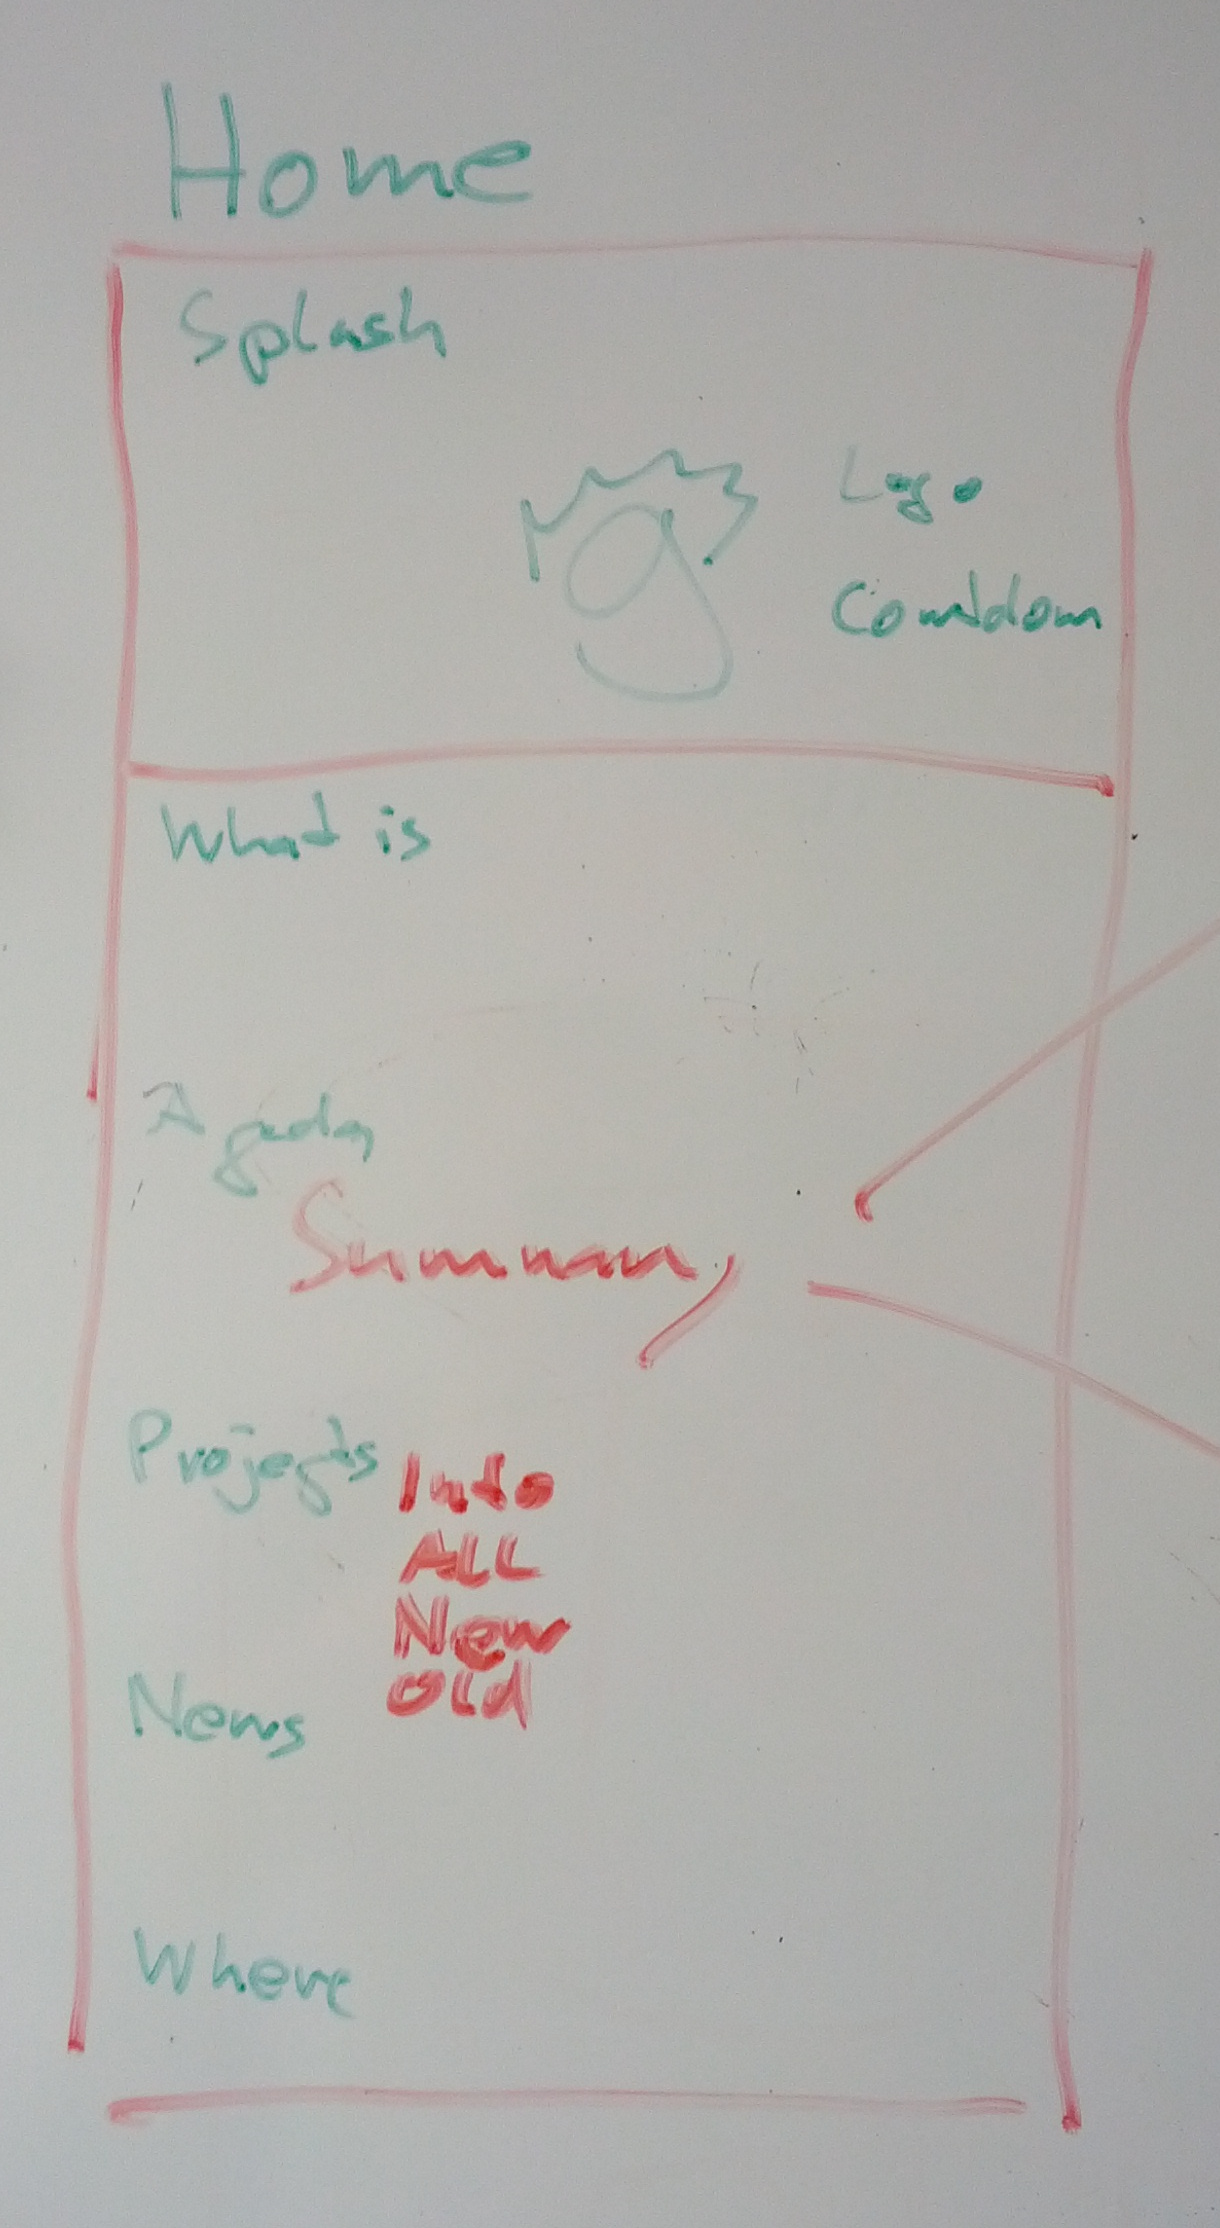 Home
Splash
g
Logo
Countdown
What is
Agenda
Summary
Projects
Info
ALL
New
Old
News
Where